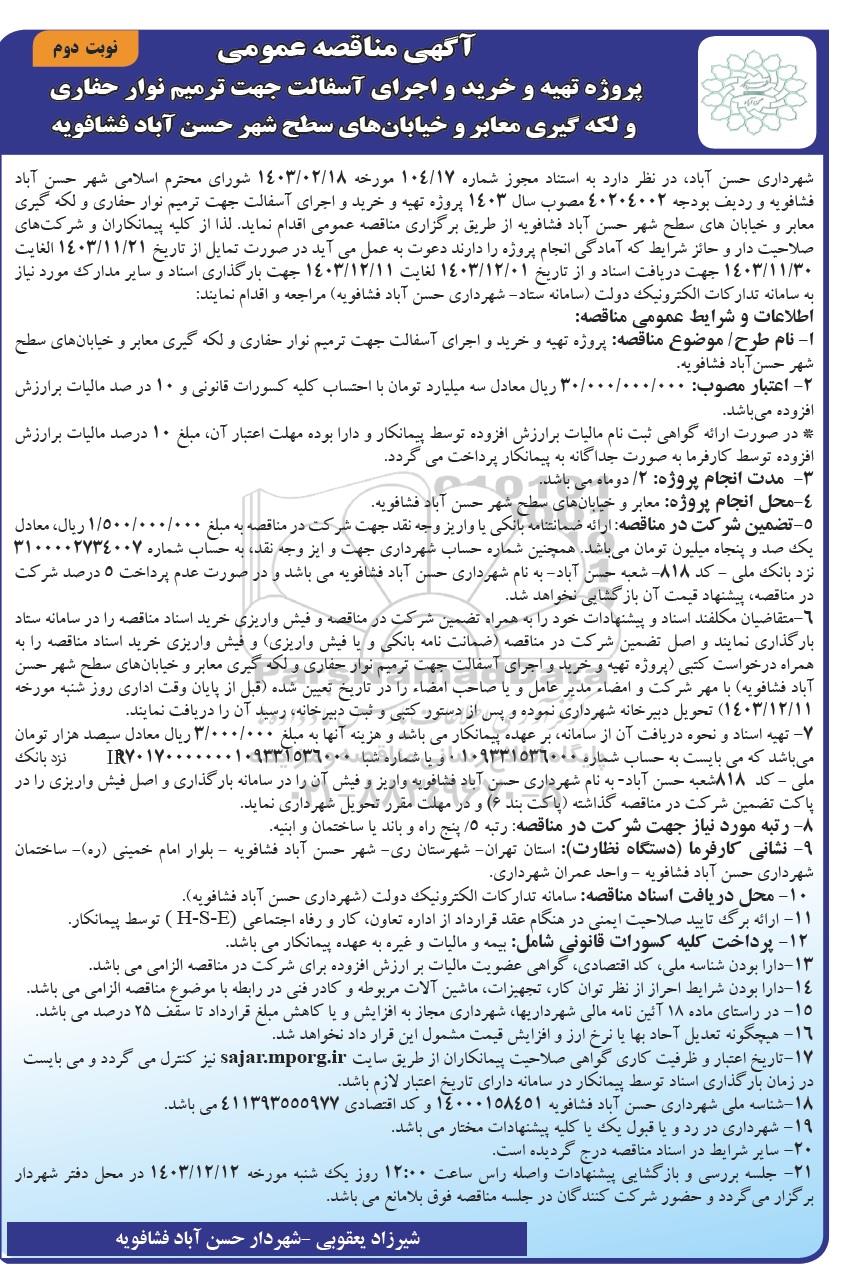 آگهی مناقصه عمومی
نوبت دوم
پروژه تهیه و خرید و اجرای آسفالت جهت ترمیم نوار حفاری
و لکه گیری معابر و خیابان‌های سطح شهر حسن آباد فشافویه
شهرداری حسن آباد، در نظر دارد به استناد مجوز شماره ۱۰۴/۱۷ مورخه ۱۴۰۳/۰۲/۱۸ شورای محترم اسلامی شهر حسن آباد
فشافویه و ردیف بودجه ۴۰۲۰۴۰۰۲ مصوب سال ۱۴۰۳ پروژه تهیه و خرید و اجرای آسفالت جهت ترمیم نوار حفاری و لکه گیری
معابر و خیابان های سطح شهر حسن آباد فشافویه از طریق برگزاری مناقصه عمومی اقدام نماید. لذا از کلیه پیمانکاران و شرکت‌های
صلاحیت دار و حائز شرایط که آمادگی انجام پروژه را دارند دعوت به عمل می آید در صورت تمایل از تاریخ ۱۴۰۳/۱۱/۲۱ الغایت
۱۴۰۳/۱۱/۳۰ جهت دریافت اسناد و از تاریخ ۱۴۰۳/۱۲/۰۱ لغایت ۱۴۰۳/۱۲/۱۱ جهت بارگذاری اسناد و سایر مدارک مورد نیاز
به سامانه تدارکات الکترونیک دولت (سامانه ستاد- شهرداری حسن آباد فشافویه) مراجعه و اقدام نمایند:
اطلاعات و شرایط عمومی مناقصه:
۱- نام طرح/ موضوع مناقصه: پروژه تهیه و خرید و اجرای آسفالت جهت ترمیم نوار حفاری و لکه گیری معابر و خیابان‌های سطح
شهر حسن‌آباد فشافویه.
۲- اعتبار مصوب: ۳۰/۰۰۰/۰۰۰/۰۰۰ ریال معادل سه میلیارد تومان با احتساب کلیه کسورات قانونی و ۱۰ در صد مالیات برارزش
افزوده می‌باشد.
* در صورت ارائه گواهی ثبت نام مالیات برارزش افزوده توسط پیمانکار و دارا بوده مهلت اعتبار آن، مبلغ ۱۰ درصد مالیات برارزش
افزوده توسط کارفرما به صورت جداگانه به پیمانکار پرداخت می گردد.
۳- مدت انجام پروژه: ۲/ دوماه می باشد.
۴-محل انجام پروژه: معابر و خیابان‌های سطح شهر حسن آباد فشافویه.
۵-تضمین شرکت در مناقصه: ارائه ضمانتنامه بانکی یا واریز وجه نقد جهت شرکت در مناقصه به مبلغ ۱/۵۰۰/۰۰۰/۰۰۰ ریال، معادل
یک صد و پنجاه میلیون تومان می‌باشد. همچنین شماره حساب شهرداری جهت و ایز وجه نقد، به حساب شماره ۳۱۰۰۰۰۲۷۳۴۰۰۷
نزد بانک ملی - کد ۸۱۸- شعبه حسن آباد- به نام شهرداری حسن آباد فشافویه می باشد و در صورت عدم پرداخت ۵ درصد شرکت
در مناقصه، پیشنهاد قیمت آن بازگشایی نخواهد شد.
۶-متقاضیان مکلفند اسناد و پیشنهادات خود را به همراه تضمین شرکت در مناقصه و فیش واریزی خرید اسناد مناقصه را در سامانه ستاد
بارگذاری نمایند و اصل تضمین شرکت در مناقصه (ضمانت نامه بانکی و یا فیش واریزی) و فیش واریزی خرید اسناد مناقصه را به
همراه درخواست کتبی (پروژه تهیه و خرید و اجرای آسفالت جهت ترمیم نوار حفاری و لکه گیری معابر و خیابان‌های سطح شهر حسن
آباد فشافویه) با مهر شرکت و امضاء مدیر عامل و یا صاحب امضاء را در تاریخ تعیین شده (قبل از پایان وقت اداری روز شنبه مورخه
۱۴۰۳/۱۲/۱۱) تحویل دبیرخانه شهرداری نموده و پس از دستور کتبی و ثبت دبیرخانه، رسید آن را دریافت نمایند.
۷- تهیه اسناد و نحوه دریافت آن از سامانه، بر عهده پیمانکار می باشد و هزینه آنها به مبلغ ۳/۰۰۰/۰۰۰ ریال معادل سیصد هزار تومان
می‌باشد که می بایست به حساب شماره ۰۱۰۹۳۳۱۵۳۶۰۰۰ و یا شماره شبا IR۷۰۱۷۰۰۰۰۰۰۰۱۰۹۳۳۱۵۳۶۰۰۰ نزد بانک
ملی - کد ۸۱۸شعبه حسن آباد- به نام شهرداری حسن آباد فشافویه واریز و فیش آن را در سامانه بارگذاری و اصل فیش واریزی را در
پاکت تضمین شرکت در مناقصه گذاشته (پاکت بند ۶) و در مهلت مقرر تحویل شهرداری نماید.
۸- رتبه مورد نیاز جهت شرکت در مناقصه: رتبه ۵/ پنج راه و باند یا ساختمان و ابنیه.
۹- نشانی کارفرما (دستگاه نظارت): استان تهران- شهرستان ری- شهر حسن آباد فشافویه - بلوار امام خمینی (ره)- ساختمان
شهرداری حسن آباد فشافویه - واحد عمران شهرداری.
۱۰- محل دریافت اسناد مناقصه: سامانه تدارکات الکترونیک دولت (شهرداری حسن آباد فشافویه).
۱۱- ارائه برگ تایید صلاحیت ایمنی در هنگام عقد قرارداد از اداره تعاون، کار و رفاه اجتماعی (H-S-E ) توسط پیمانکار.
۱۲- پرداخت کلیه کسورات قانونی شامل: بیمه و مالیات و غیره به عهده پیمانکار می باشد.
۱۳-دارا بودن شناسه ملی، کد اقتصادی، گواهی عضویت مالیات بر ارزش افزوده برای شرکت در مناقصه الزامی می باشد.
۱۴-دارا بودن شرایط احراز از نظر توان کار، تجهیزات، ماشین آلات مربوطه و کادر فنی در رابطه با موضوع مناقصه الزامی می باشد.
۱۵- در راستای ماده ۱۸ آئین نامه مالی شهرداریها، شهرداری مجاز به افزایش و یا کاهش مبلغ قرارداد تا سقف ۲۵ درصد می باشد.
۱۶- هیچگونه تعدیل آحاد بها یا نرخ ارز و افزایش قیمت مشمول این قرار داد نخواهد شد.
۱۷-تاریخ اعتبار و ظرفیت کاری گواهی صلاحیت پیمانکاران از طریق سایت sajar.mporg.ir نیز کنترل می گردد و می بایست
در زمان بارگذاری اسناد توسط پیمانکار در سامانه دارای تاریخ اعتبار لازم باشد.
۱۸-شناسه ملی شهرداری حسن آباد فشافویه ۱۴۰۰۰۱۵۸۴۵۱ و کد اقتصادی ۴۱۱۳۹۳۵۵۵۹۷۷ می باشد.
۱۹- شهرداری در رد و یا قبول یک یا کلیه پیشنهادات مختار می باشد.
۲۰- سایر شرایط در اسناد مناقصه درج گردیده است.
۲۱- جلسه بررسی و بازگشایی پیشنهادات واصله راس ساعت ۱۲:۰۰ روز یک شنبه مورخه ۱۴۰۳/۱۲/۱۲ در محل دفتر شهردار
برگزار می‌گردد و حضور شرکت کنندگان در جلسه مناقصه فوق بلامانع می باشد.
شیرزاد یعقوبی -شهردار حسن آباد فشافویه
ParsNamadData
۰۲۱-۸۸۳۴۹۶۷۰-۵